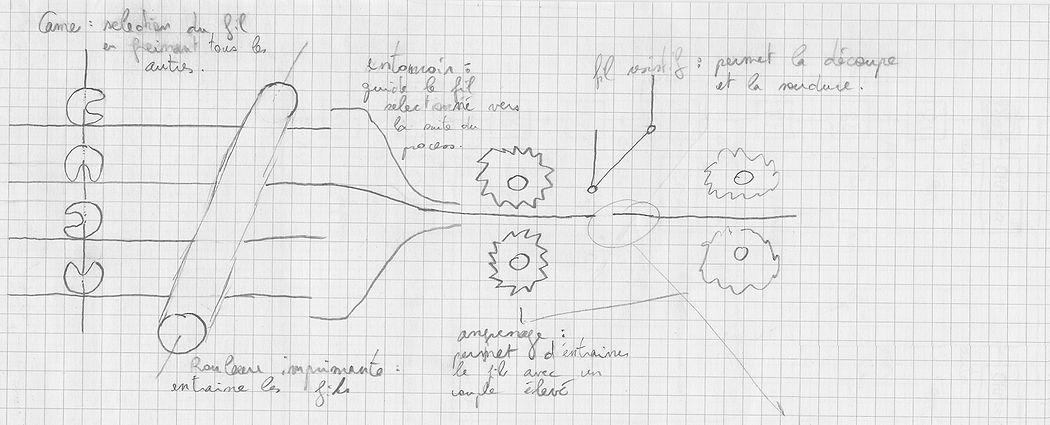 Came : selection du fil
en freinant tous les
autres.
entonnoir :
guide le fil
selectionné vers
la suite du
process.
fil résistif : permet la découpe
et la soudure.
Rouleau imprimante :
entraine les fils
engrenage :
permet d'entrainer
le fil avec un
couple élevé